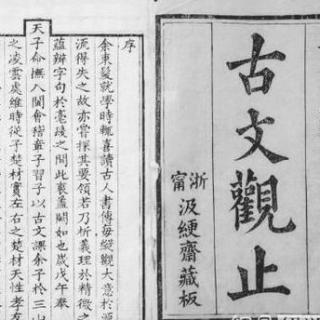 古文觀止
浙甯
汲綆齋藏板
序
余束髮就學時輒喜讀古人書傳每縱觀大意於源
流得失之故亦嘗探其要領若乃析義理於精微之
蘊辨字句於毫髮之間此衷蓋闕如也歲戊午奉
天子命撫八閩會稽章子習子以古文課余子於三山
之凌雲處維時從子楚材實左右之楚材天性孝友